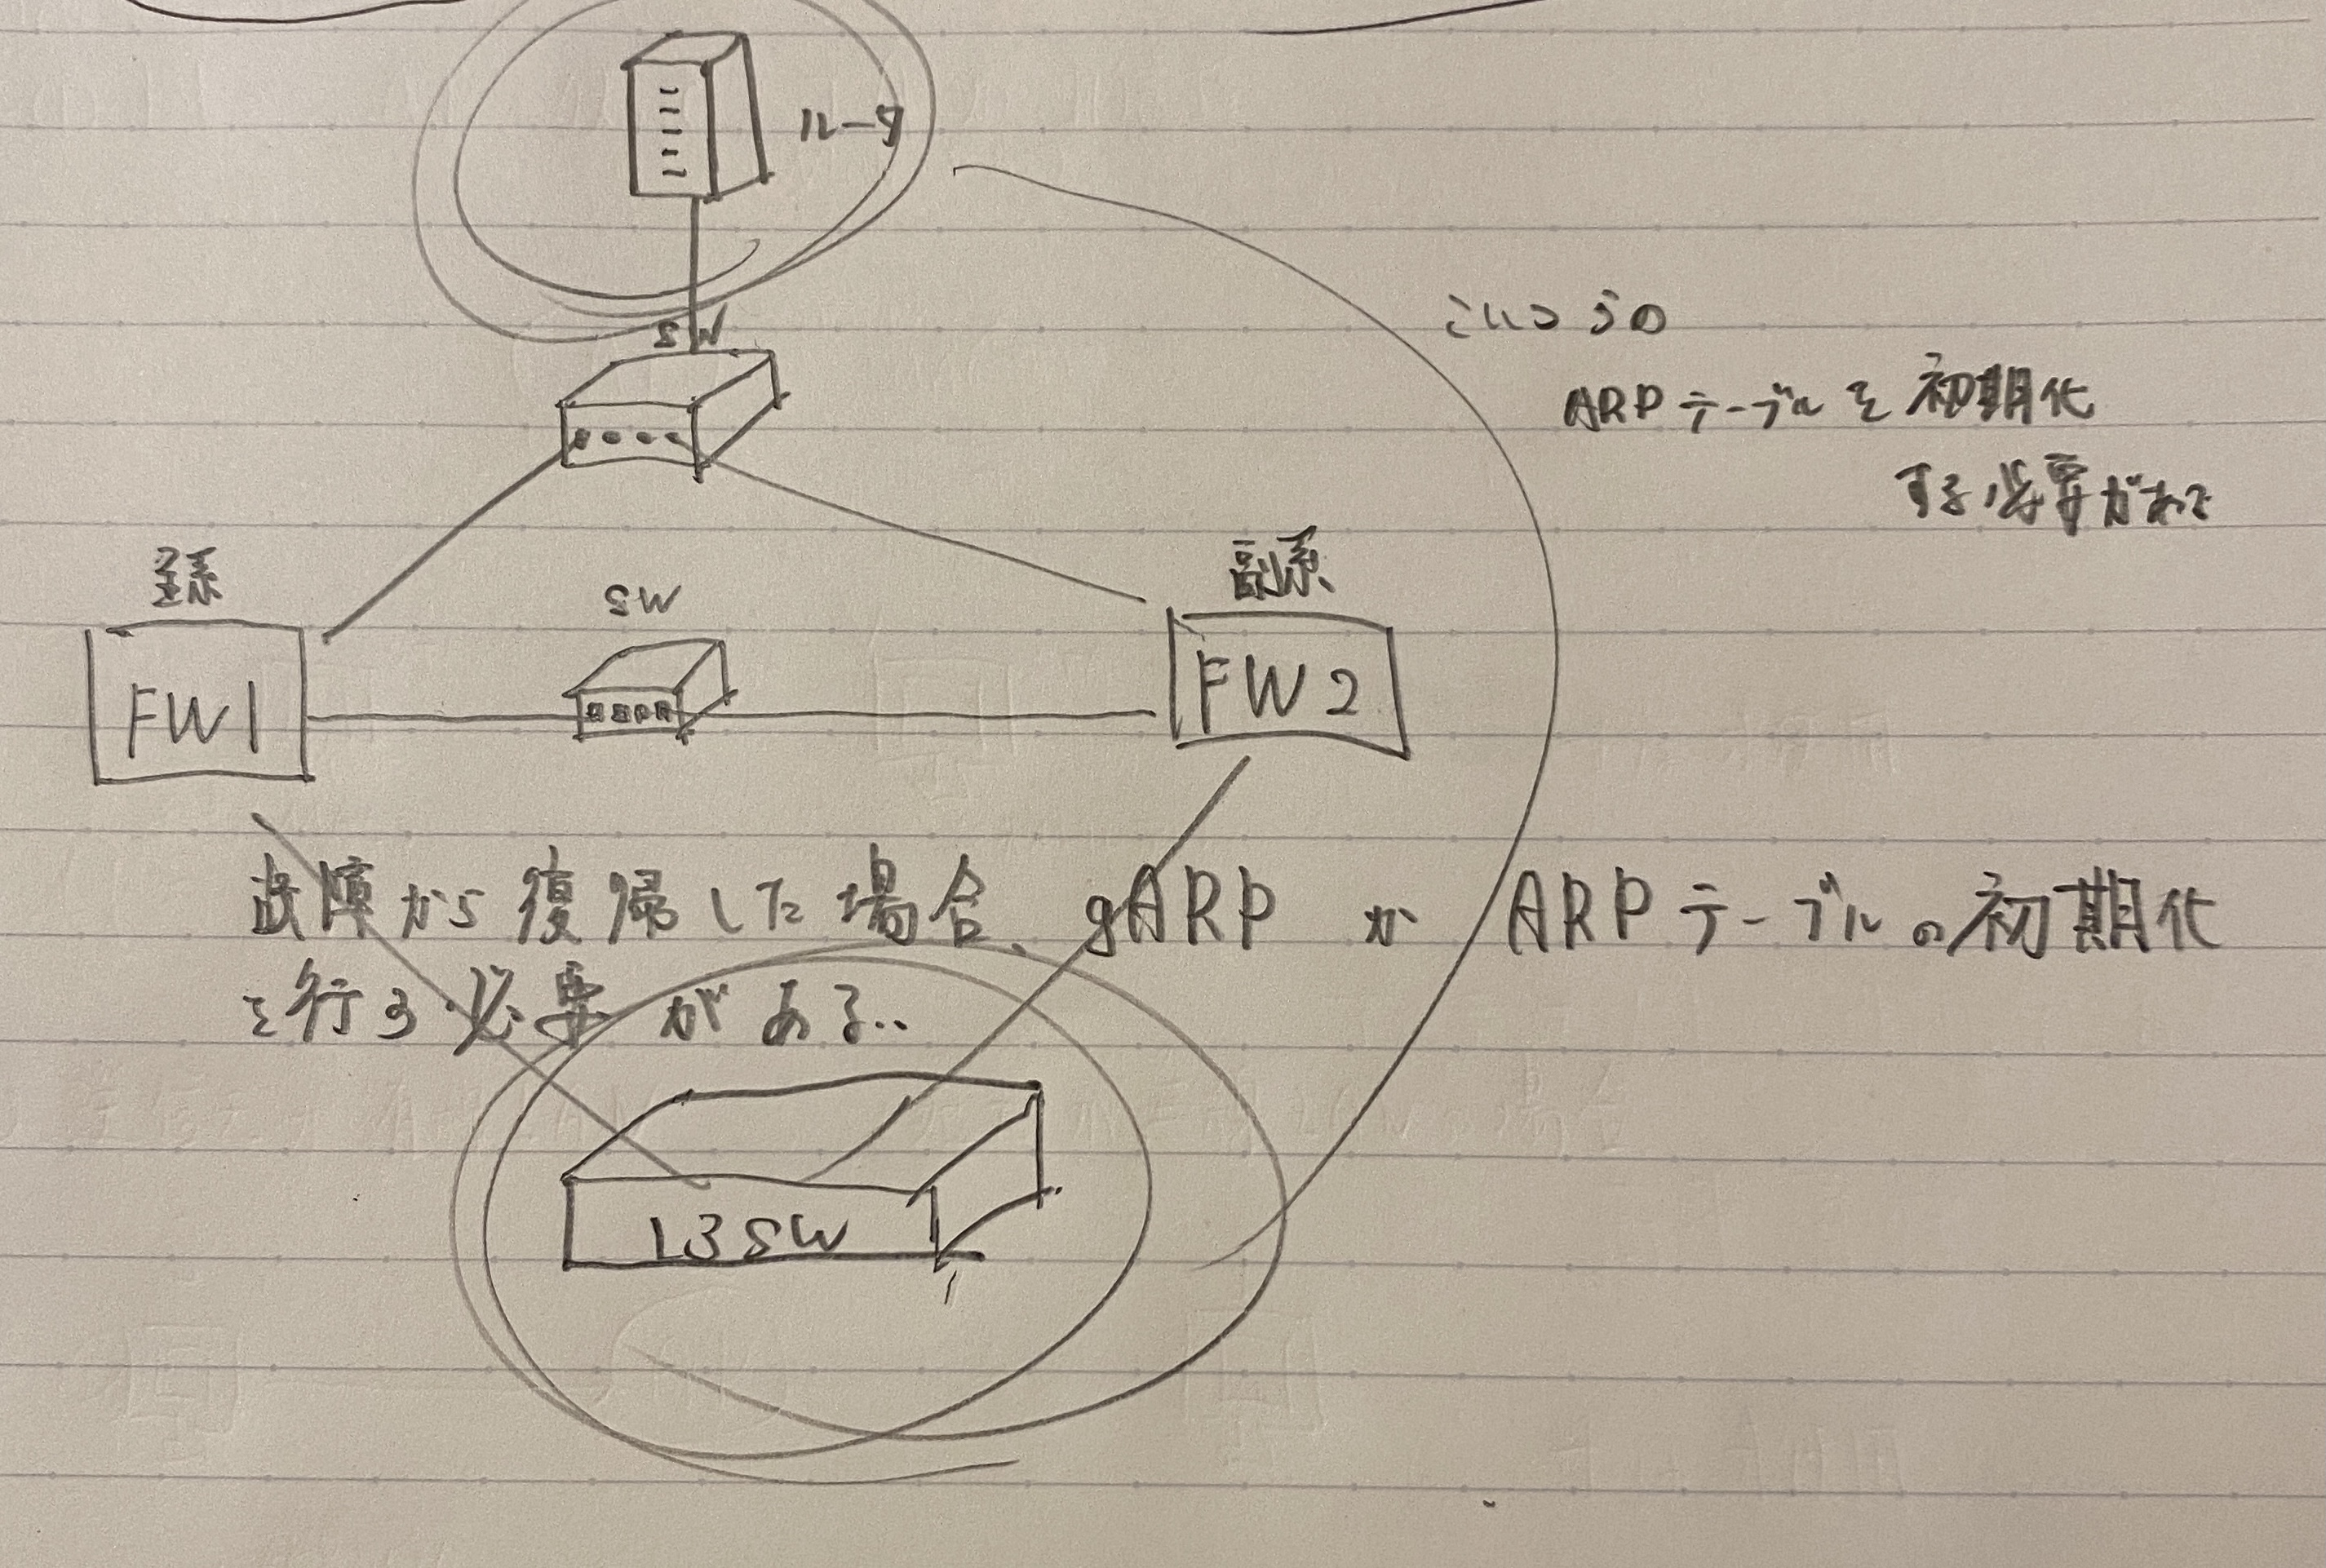 ルータ
SW
こいつらの
ARPテーブルを初期化
する必要がある
主系
SW
副系
FW1
FW2
故障から復帰した場合、gARP か ARPテーブルの初期化
を行う必要がある..
L3SW